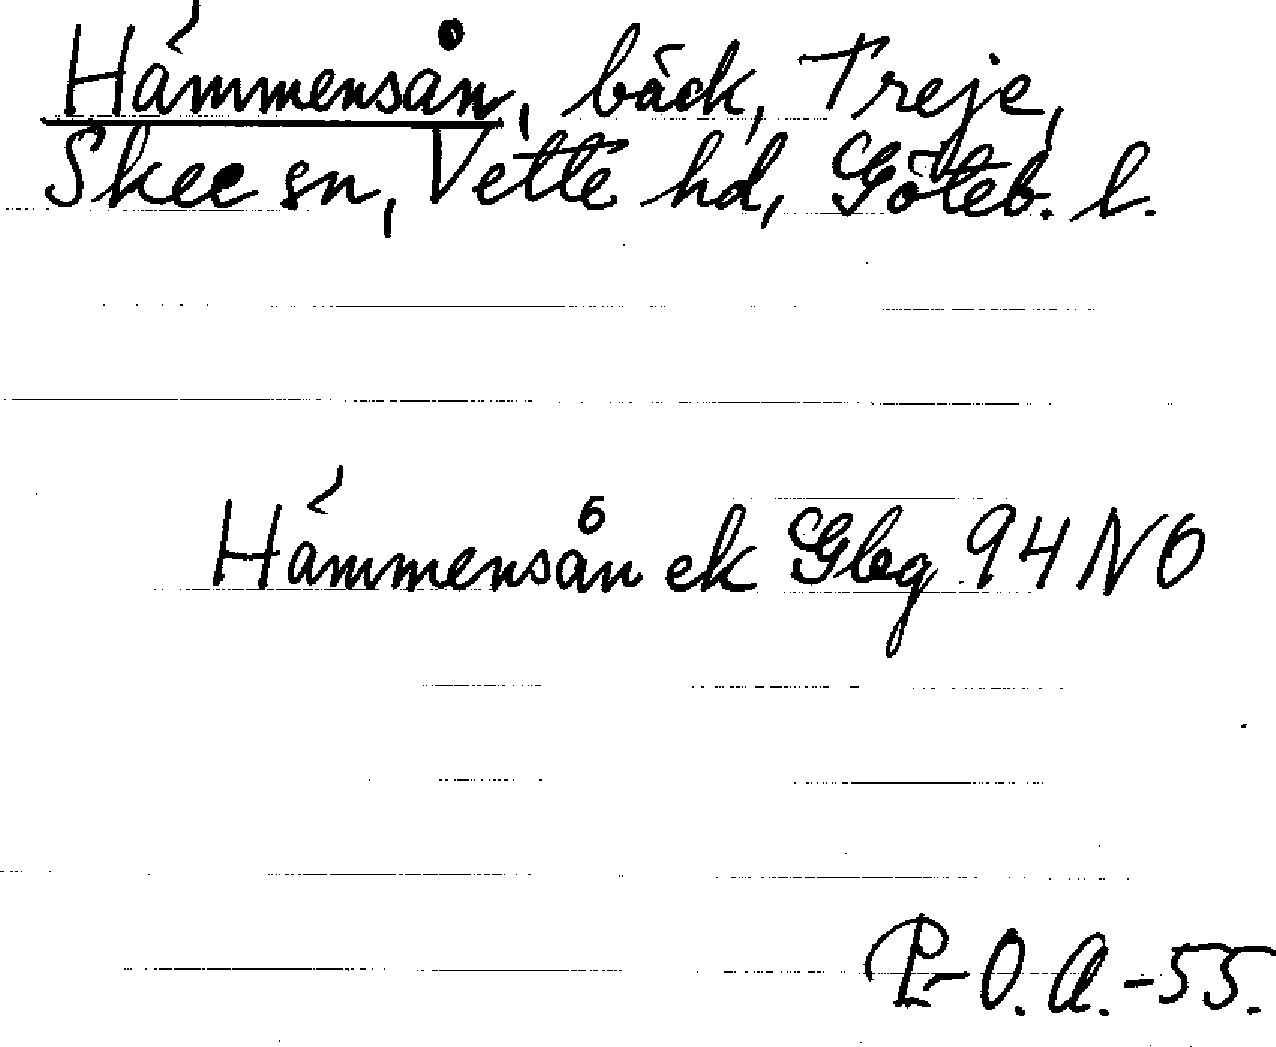 Hámmensån, bäck, Treje,
Skee sn, Vette hd, Göteb. l.
Hámmensån ek Gbg 94 NO
P-O.A.-55.